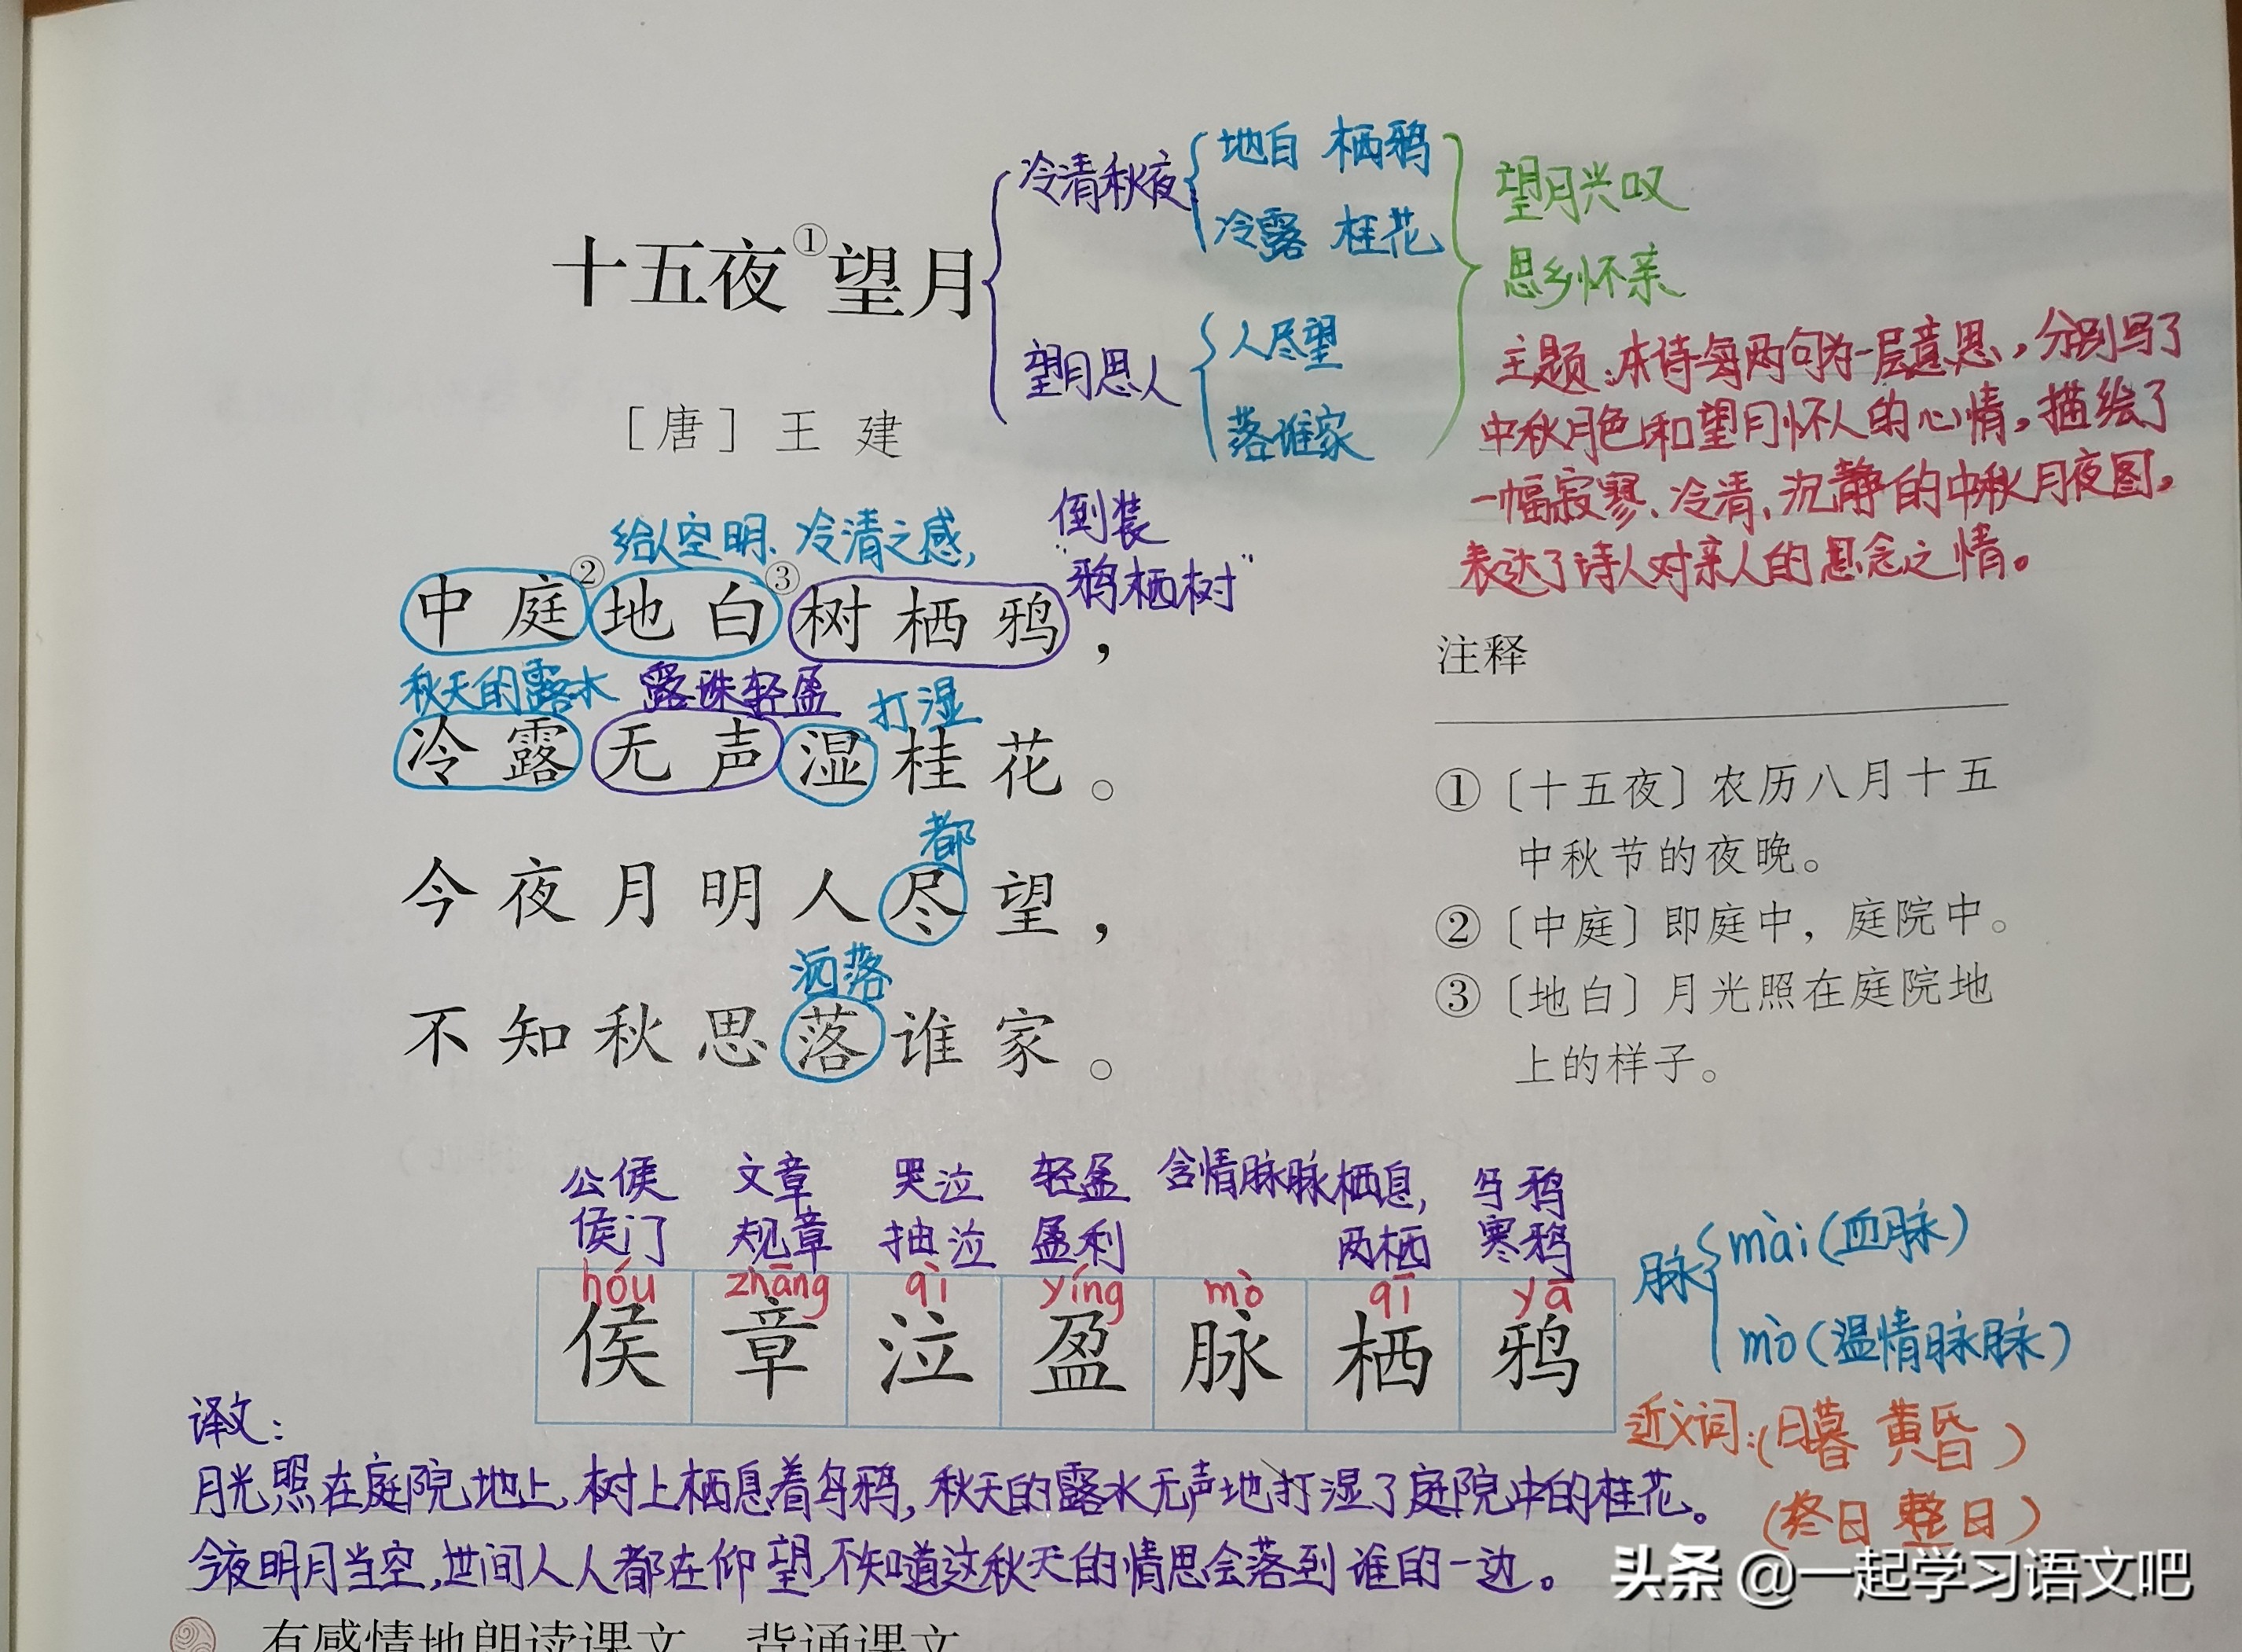 十五夜①望月
冷清秋夜
地白 栖鸦
冷露 桂花
望月思人
人尽望
落谁家
望月兴叹
思乡怀亲
主题:本诗每两句为一层意思,分别写了
中秋月色和望月怀人的心情,描绘了
一幅寂寥、冷清、沉静的中秋月夜图,
表达了诗人对亲人的思念之情。
［唐］王 建
给人空明、冷清之感,
倒装
“鸦栖树”
中庭②地白③树栖鸦，
秋天的露水 露珠轻盈 打湿
冷露无声湿桂花。
都
今夜月明人尽望，
洒落
不知秋思落谁家。
注释
①〔十五夜〕农历八月十五
中秋节的夜晚。
②〔中庭〕即庭中，庭院中。
③〔地白〕月光照在庭院地
上的样子。
公侯 文章 哭泣 轻盈 含情脉脉 栖息, 乌鸦
侯门 规章 抽泣 盈利 两栖 寒鸦
hóu zhāng qì yíng mò qī yā
侯 章 泣 盈 脉 栖 鸦
脉 mài(血脉)
mò(温情脉脉)
近义词:(日暮 黄昏)
(终日 整日)
译文:
月光照在庭院地上,树上栖息着乌鸦,秋天的露水无声地打湿了庭院中的桂花。
今夜明月当空,世间人人都在仰望,不知道这秋天的情思会落到谁的一边。
头条 @一起学习语文吧
有感情地朗读课文。背诵课文